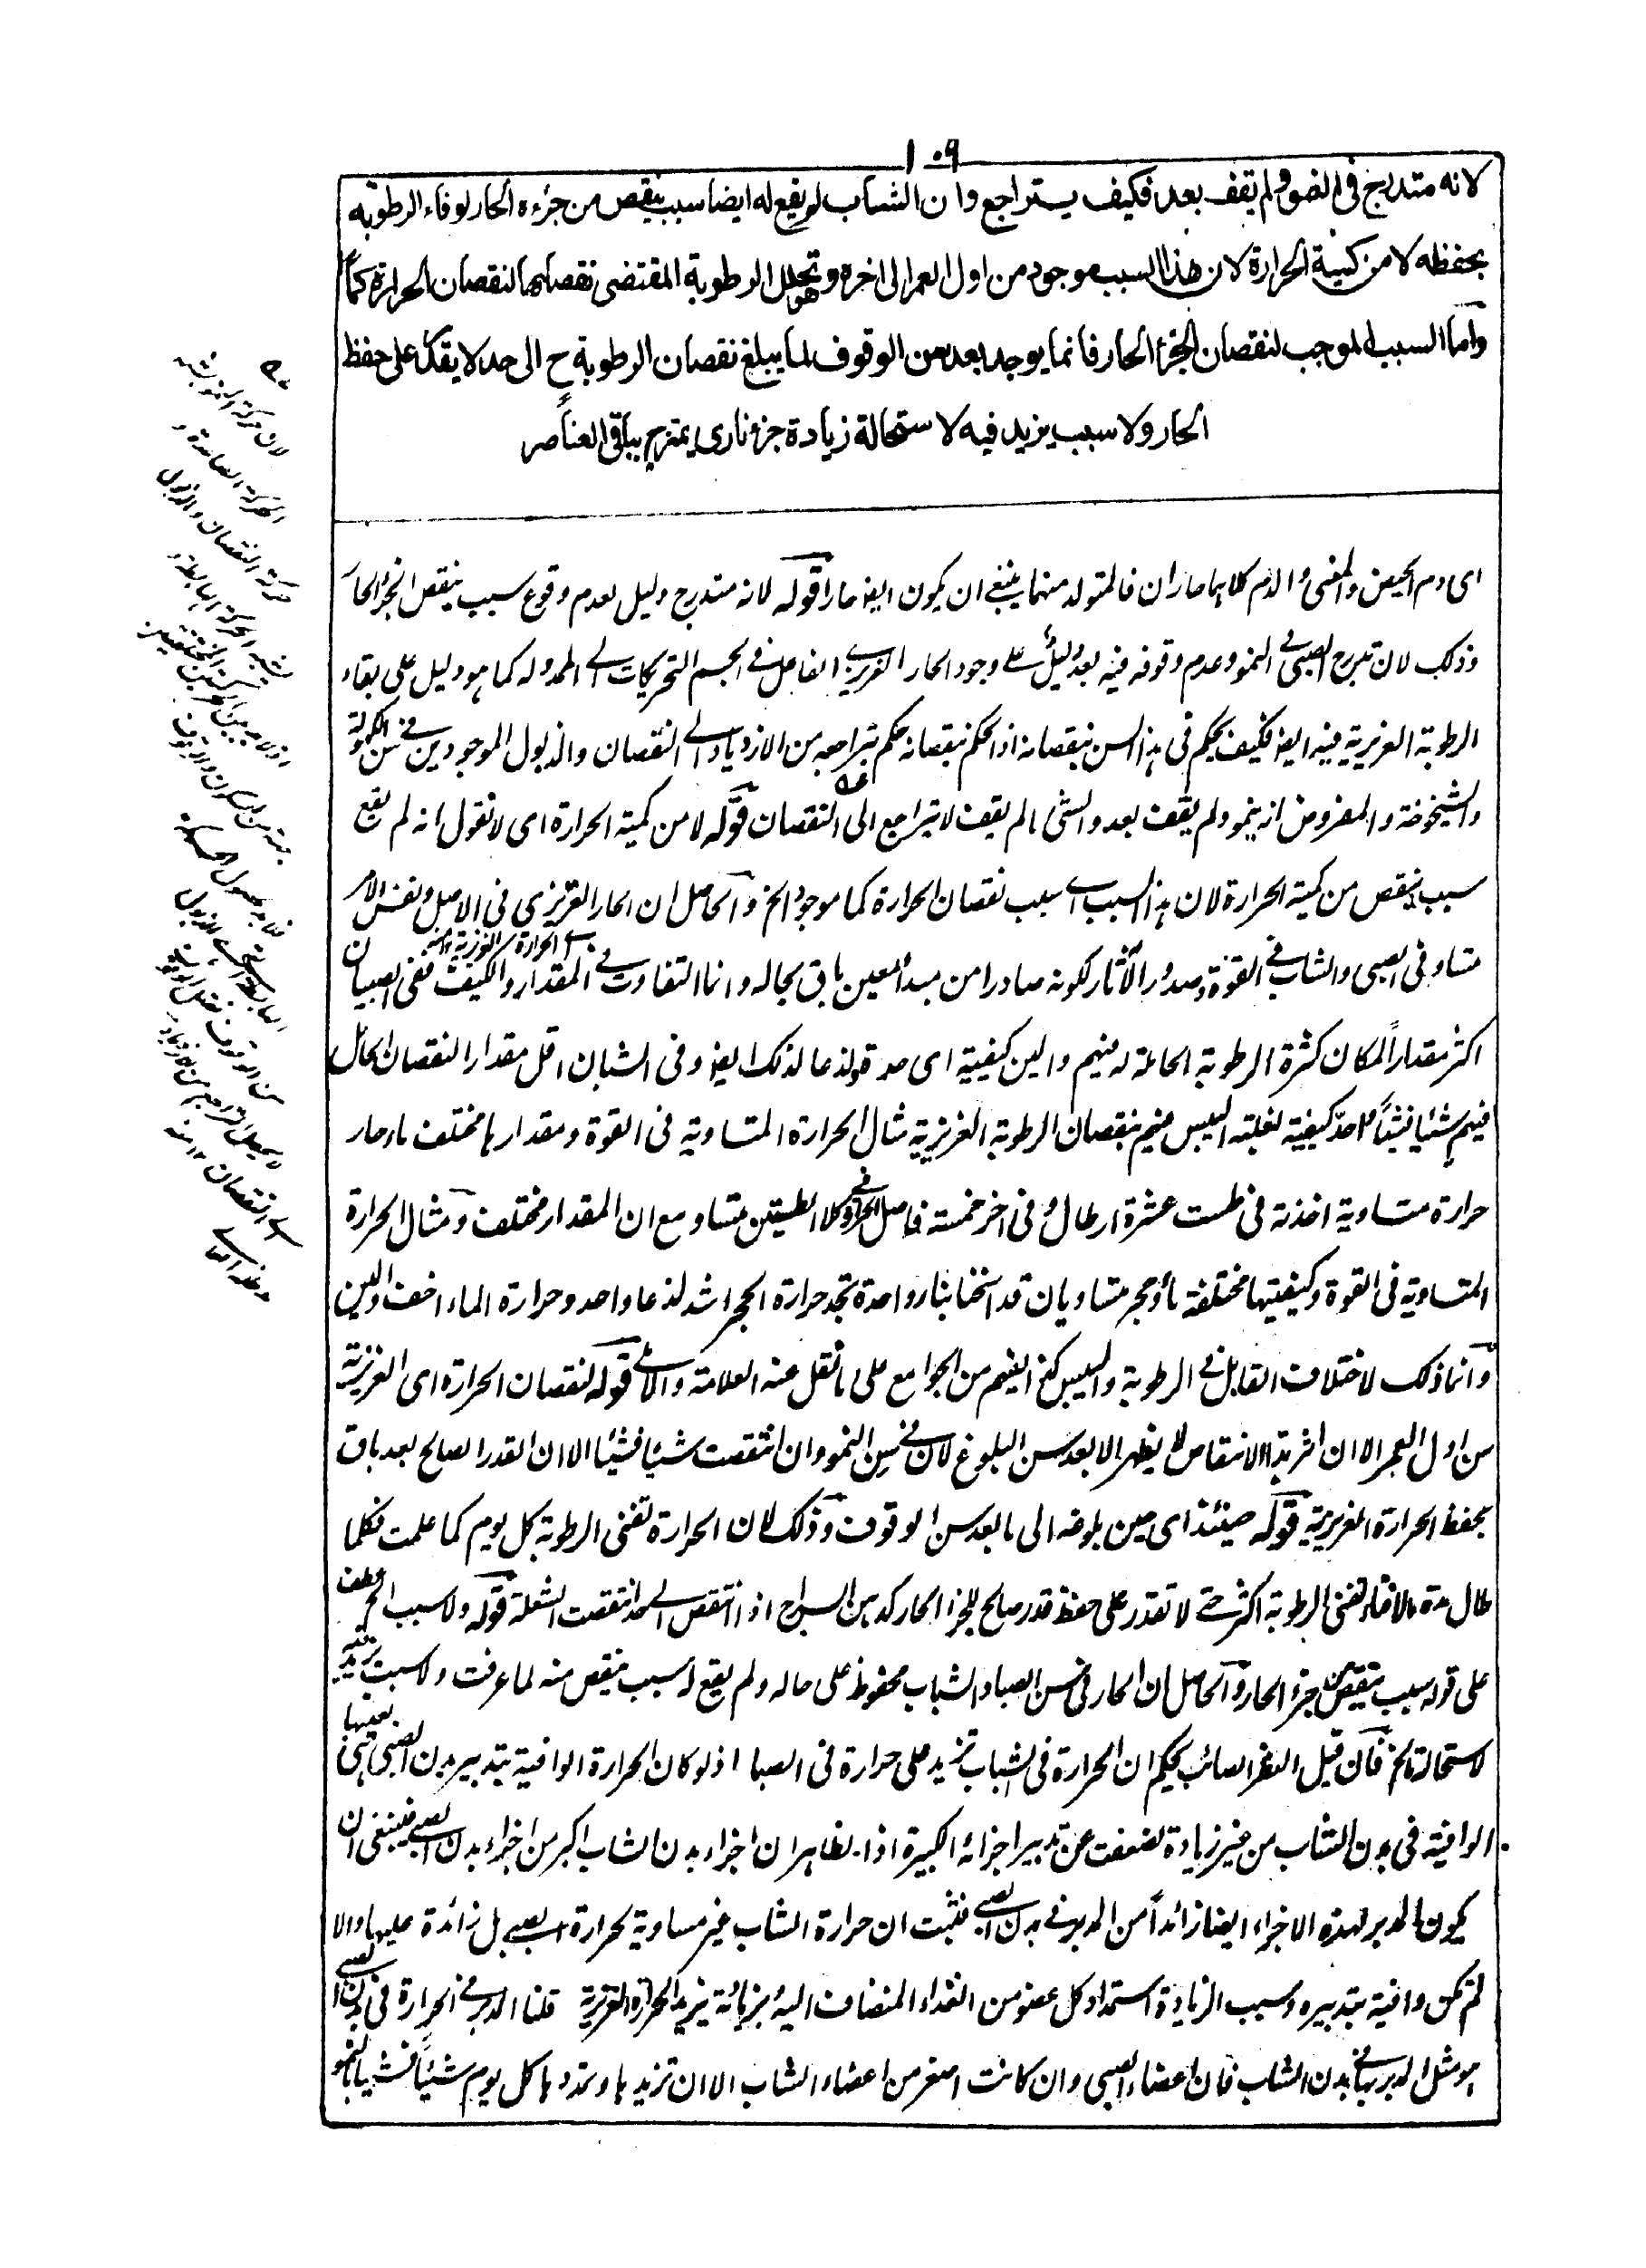 ١٠٩
لانه متدرج في النمو ولم يقف بعد فكيف يتراجع وان الشاب لم يقع له ايضا سبب ينقص من جزءه الحار لوفاء الرطوبة
بحفظه لا من كمية الحرارة لان هذا السبب موجود من اول العمر الى اخره وهو تحلل الرطوبة المقتضي نقصانها لنقصان الحرارة كمًّا
واما السبب الموجب لنقصان الجزء الحار فانما يوجد بعد سن الوقوف لما يبلغ نقصان الرطوبة ح الى حد لا يقدر على حفظ
الحار ولا سبب يزيد فيه لاستحالة زيادة جزء ناري يمتزج بباقي العناصر
اى دم الحيض والمنى والدم كلاهما حاران فالمتولد منهما ينبغى ان يكون ايضا حارا قوله لانه متدرج دليل لعدم وقوع سبب ينقص الجزء الحار
وذلك لان تدرج الصبى فى النمو وعدم وقوفه فيه بعد دليل على وجود الحار الغريزى الفاعل فى الجسم التحريكات الى المدولة كما هو دليل على بقاء
الرطوبة الغريزية فيه ايضا فكيف يحكم فى هذا السن بنقصانه اذ الحكم بنقصانه حكم بتراجعه من الازدياد الى النقصان والذبول الموجودين فى سن الكهولة
والشيخوخة والمفروض انه ينمو ولم يقف بعد والشئ ما لم يقف لا يتراجع الى النقصان قوله لا من كمية الحرارة اى لا نقول انه لم يقع
سبب ينقص من كمية الحرارة لان هذا السبب اى سبب نقصان الحرارة كما موجود الخ والحاصل ان الحار الغريزى فى الاصل ونفس الامر
متساو فى الصبى والشاب فى القوة وصدور الآثار لكونه صادرا من مبدأ معين باق بحاله وانما التفاوت فى المقدار والكيف ففى الصبيان
اكثر مقدارا لمكان كثرة الرطوبة الحاملة له فيهم والين كيفية اى حدة ولذعا لذلك ايضا وفى الشبان اقل مقدارا لنقصان الحال
فيهم شيئا فشيئا واحد كيفية لغلبة اليبس فيهم بنقصان الرطوبة الغريزية مثال الحرارة المتساوية فى القوة ومقدارها مختلف ماء حار
حرارة متساوية اخذت فى طست عشرة ارطال وفى اخر خمسة فاصل الحرارة فى كلا الطستين متساو مع ان المقدار مختلف ومثال الحرارة
المتساوية فى القوة وكيفيتها مختلفة ماء وحجر متساويان قد اسخنا بنار واحدة تجد حرارة الحجر اشد لذعا واحد وحرارة الماء اخف والين
وانما ذلك لاختلاف القابل فى الرطوبة واليبس كذا يفهم من الجوامع على ما نقل عنه العلامة والآملى قوله لنقصان الحرارة اى الغريزية
من اول العمر الا ان اثر هذا الانتقاص لا يظهر الا بعد سن البلوغ لان فى سن النمو وان انتقصت شيئا فشيئا الا ان القدر الصالح بعد باق
بحفظ الحرارة الغريزية قوله حينئذ اى حين بلوغه الى ما بعد سن الوقوف وذلك لان الحرارة تفنى الرطوبة كل يوم كما علمت فكلما
طال مدة الافناء تفنى الرطوبة اكثر حتى لا تقدر على حفظ قدر صالح للجزء الحار كدهن السراج اذا انتقص الى حد انتقصت الشعلة قوله ولا سبب الخ عطف
على قوله سبب ينقص من جزء الحار والحاصل ان الحار فى سن الصبا والشباب محفوظ على حاله ولم يقع له سبب ينقص منه لما عرفت ولا سبب يزيد فيه
لاستحالة الخ فان قيل النظر الصائب يحكم ان الحرارة فى الشباب تزيد على حرارة فى الصبا اذ لو كان الحرارة الوافية بتدبير بدن الصبى هى بعينها
الوافية فى بدن الشاب من غير زيادة لضعفت عن تدبير اجزائه الكبيرة اذ الظاهر ان اجزاء بدن الشاب اكبر من اجزاء بدن الصبى فينبغى ان
يكون المدبر لهذه الاجزاء ايضا زائدا من المدبر فى بدن الصبى فثبت ان حرارة الشاب غير مساوية لحرارة الصبى بل زائدة عليها والا
لم تكن وافية بتدبيره وسبب الزيادة استمداد كل عضو من الغذاء المنضاف اليه بزيادته يزيد الحرارة الغريزية قلنا المدبر فى الحرارة فى بدن الصبى
هو مثل المدبر بها فى بدن الشاب فان اعضاء الصبى وان كانت اصغر من اعضاء الشاب الا ان تزيدها وتمددها كل يوم شيئا فشيئا بالنمو